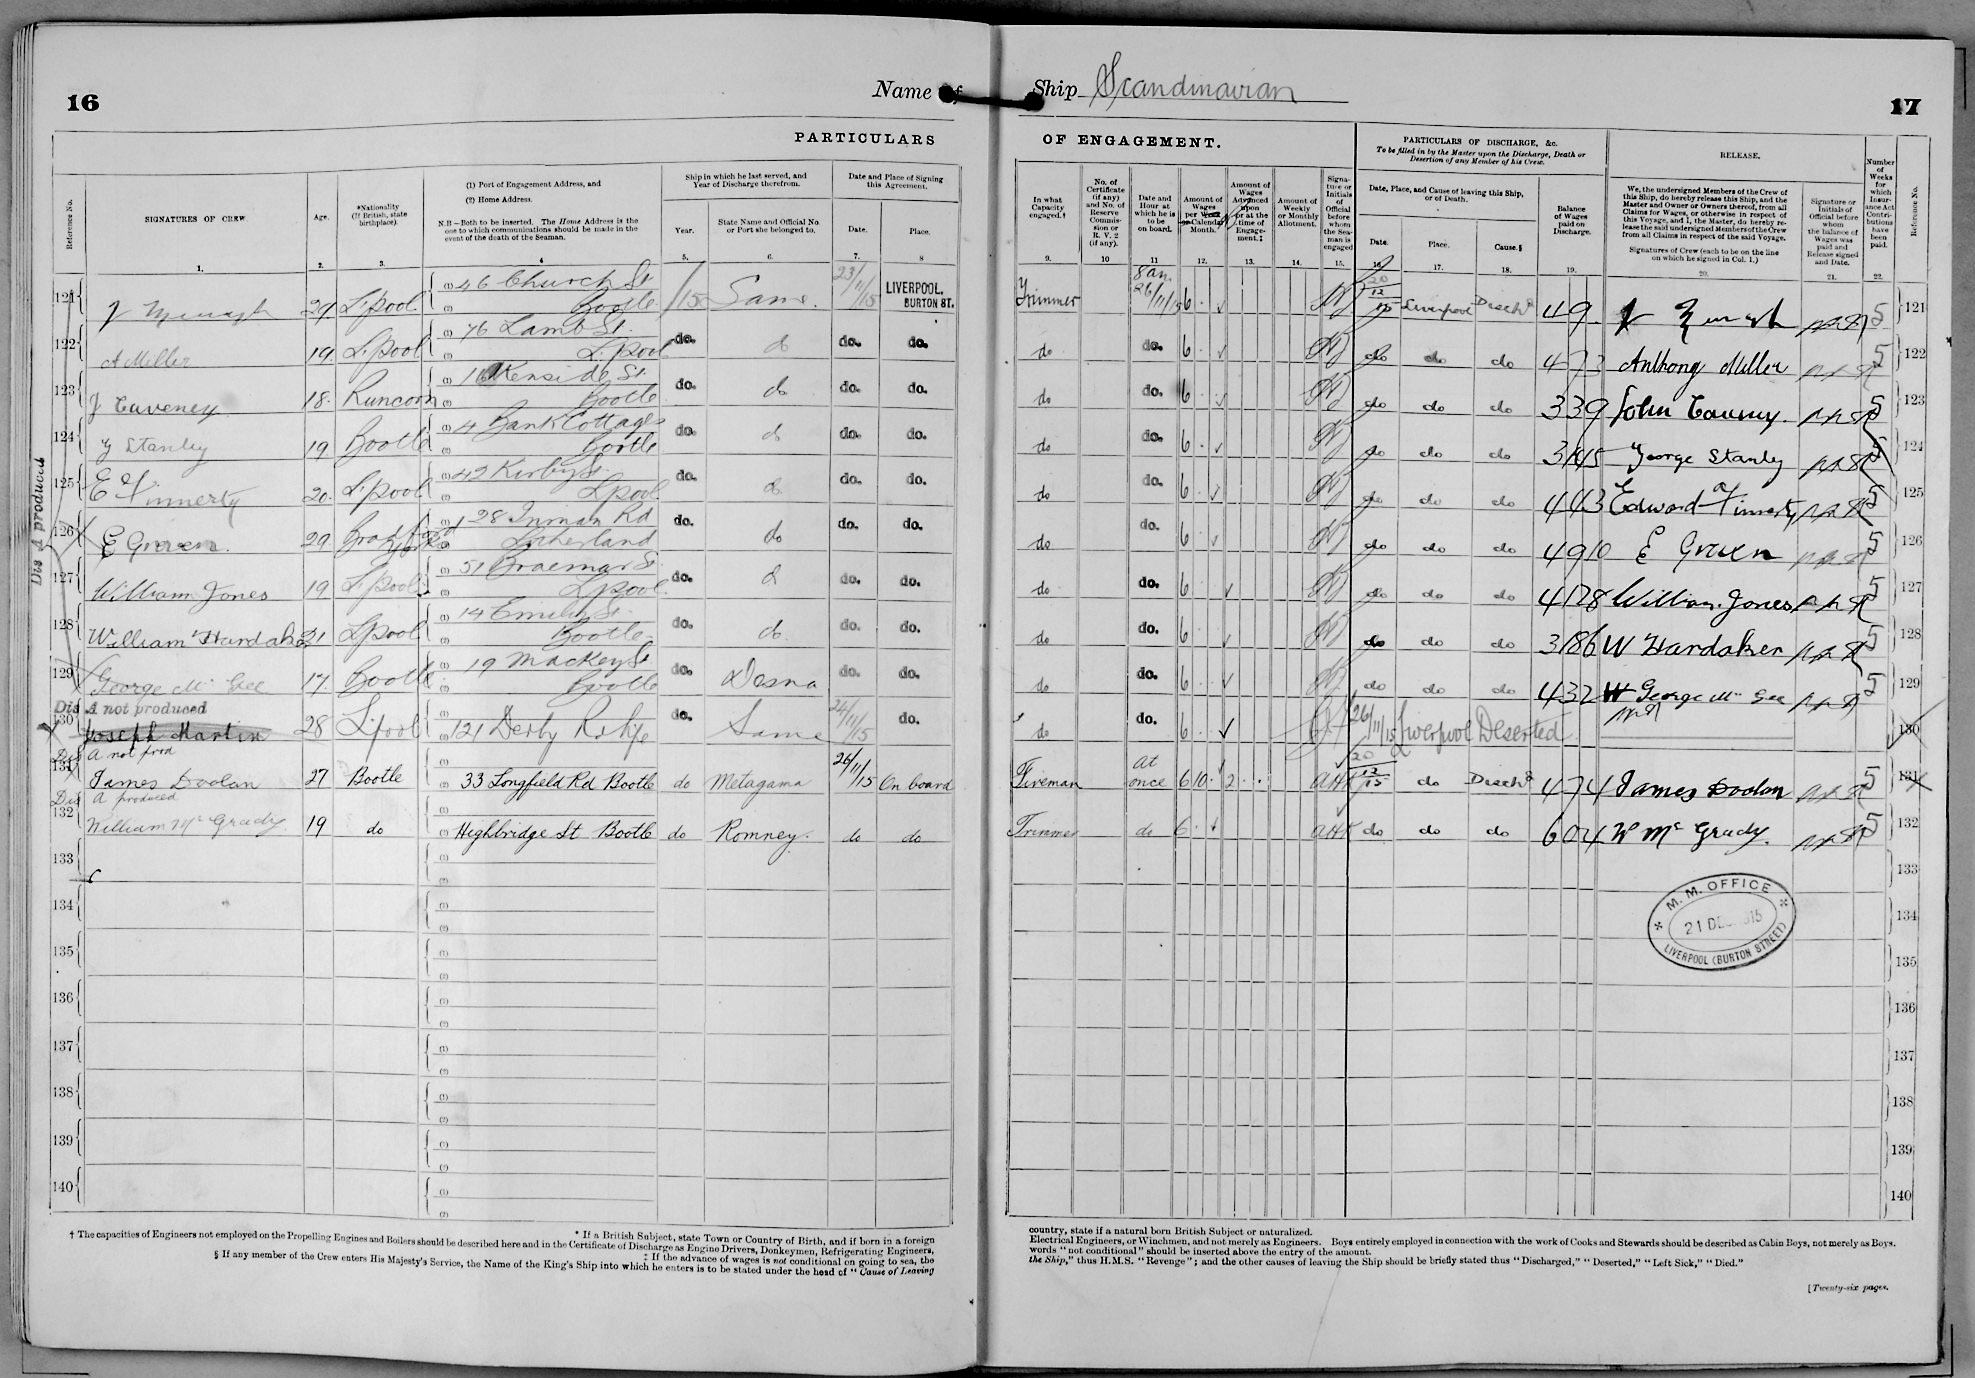 16
Name of Ship Scandinavian
17
PARTICULARS OF ENGAGEMENT.
PARTICULARS OF DISCHARGE, &c.
To be filled in by the Master upon the Discharge, Death or Desertion of any Member of his Crew.
RELEASE.
Reference No.
SIGNATURES OF CREW.
Age.
*Nationality (If British, state birthplace).
(1) Port of Engagement Address, and
(2) Home Address.
N.B.—Both to be inserted. The Home Address is the one to which communications should be made in the event of the death of the Seaman.
Ship in which he last served, and Year of Discharge therefrom.
Year.
State Name and Official No. or Port she belonged to.
Date and Place of Signing this Agreement.
Date.
Place.
In what Capacity engaged.†
No. of Certificate (if any) and No. of Reserve Commission or R. V. 2 (if any).
Date and Hour at which he is to be on board.
Amount of Wages per Week or Calendar Month.
Amount of Wages Advanced upon or at the time of Engagement.‡
Amount of Weekly or Monthly Allotment.
Signature or Initials of Official before whom the Seaman is engaged
Date, Place, and Cause of leaving this Ship, or of Death.
Date.
Place.
Cause.§
Balance of Wages paid on Discharge.
We, the undersigned Members of the Crew of this Ship, do hereby release this Ship, and the Master and Owner or Owners thereof, from all Claims for Wages, or otherwise in respect of this Voyage, and I, the Master, do hereby release the said undersigned Members of the Crew from all Claims in respect of the said Voyage.
Signatures of Crew (each to be on the line on which he signed in Col. 1.)
Signature or Initials of Official before whom the balance of Wages was paid and Release signed and Date.
Number of Weeks for which Insurance Act Contributions have been paid.
Reference No.
1. 2. 3. 4 5. 6. 7. 8 9. 10 11 12. 13. 14. 15. 16. 17. 18. 19. 20. 21. 22.
Dis A produced
121 29 L'pool (1) 46 Church St (2) Bootle /15 Same. 23/11/15 LIVERPOOL. BURTON ST. Trimmer 8 am. 26/11/15 6 20/12/15 Liverpool Disch'd 4 9 5 121
122 A Miller 19 L'pool (1) 76 Lamb St. (2) L'pool do. do do. do. do do. 6 do do do Anthony Miller 5 122
123 J Caveney 18. Runcorn (1) (2) Bootle do. do do. do. do do. 6 do do do 3 3 9 John 5 123
124 G Stanley 19 Bootle (1) 4 Bank Cottages (2) Bootle do. do do. do. do do. 6 do do do George Stanley 5 124
125 E Finnerty 20. L'pool (1) 42 Kirby St. (2) L'pool do. do do. do. do do. 6 do do do 4 4 3 Edward Finnerty 5 125
126 E Green. 29 Bradford Yorks (1) 28 Inman Rd (2) Litherland do. do do. do. do do. 6 do do do 4 9 10 E Green 5 126
127 William Jones 19 L'pool (1) 51 Braemar St. (2) L'pool do. do do. do. do do. 6 do do do 4 17 8 William Jones 5 127
128 William Hardaker 21 L'pool (1) 14 Emily St. (2) Bootle do. do do. do. do do. 6 do do do 3 18 6 W Hardaker 5 128
129 George Mc Gee 17. Bootle (1) 19 Mackey St (2) Bootle do. Desna do. do. do do. 6 do do do 4 3 2 George Mc Gee 5 129
Dis A not produced
130 Joseph Martin 28 L'pool (1) (2) 121 Derby Rd Same 24/11/15 do. do do. 6 26/11/15 Liverpool Deserted 130
Dis A not prod
131 James Doolan 27 Bootle 33 Longfield Rd Bootle do Metagama 26/11/15 On board Fireman At once 6 10 2 AHK 20/12/15 do Disch'd 4 7 4 James Doolan 5 131
Dis A produced
132 William Mc Grady 19 do (1) (2) Highbridge St Bootle do Romney. do do Trimmer do 6 AHK do do do 6 0 4 W Mc Grady. 5 132
133 (1) (2) 133
134 (1) (2) 134
135 (1) (2) 135
136 (1) (2) 136
137 (1) (2) 137
138 (1) (2) 138
139 (1) (2) 139
140 (1) (2) 140
M. M. OFFICE
21 DEC 1915
LIVERPOOL (BURTON STREET)
* If a British Subject, state Town or Country of Birth, and if born in a foreign country, state if a natural born British Subject or naturalized.
† The capacities of Engineers not employed on the Propelling Engines and Boilers should be described here and in the Certificate of Discharge as Engine Drivers, Donkeymen, Refrigerating Engineers, Electrical Engineers, or Winchmen, and not merely as Engineers. Boys entirely employed in connection with the work of Cooks and Stewards should be described as Cabin Boys, not merely as Boys.
‡ If the advance of wages is not conditional on going to sea, the words "not conditional" should be inserted above the entry of the amount.
§ If any member of the Crew enters His Majesty's Service, the Name of the King's Ship into which he enters is to be stated under the head of "Cause of Leaving the Ship," thus H.M.S. "Revenge"; and the other causes of leaving the Ship should be briefly stated thus "Discharged," "Deserted," "Left Sick," "Died."
[Twenty-six pages.